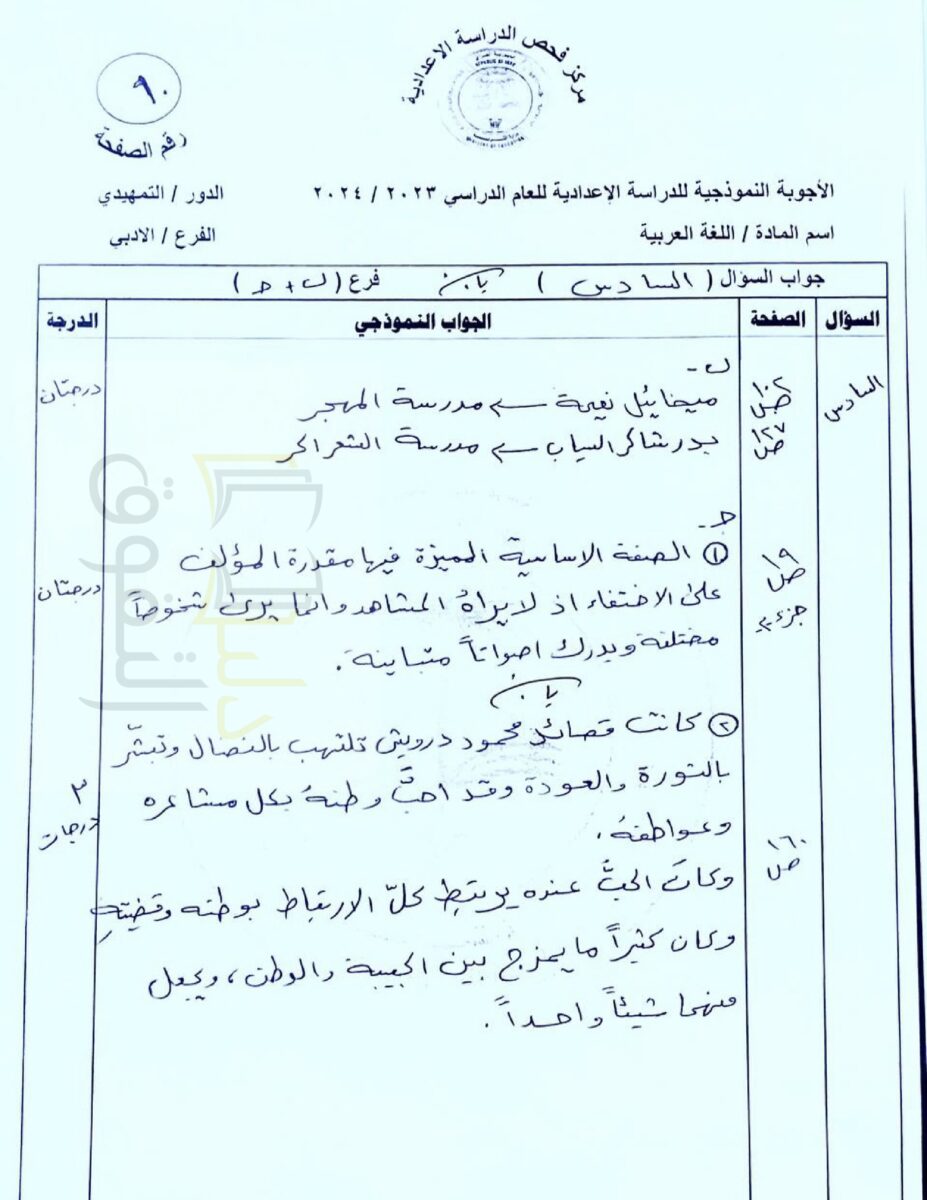 مركز فحص الدراسة الاعدادية
٩٠
رقم الصفحة
الأجوبة النموذجية للدراسة الإعدادية للعام الدراسي ٢٠٢٣ / ٢٠٢٤
الدور / التمهيدي
اسم المادة / اللغة العربية
الفرع / الادبي
جواب السؤال ( السادس ) فرع ( ب + جـ )
السؤال الصفحة الجواب النموذجي الدرجة
السادس
ب -
ص ١٠٢
ميخائيل نعيمة مدرسة المهجر
درجتان
ص ١٢٧
بدر شاكر السياب مدرسة الشعر الحر
جـ -
ص ١٩
جزء ٢
① الصفة الاساسية المميزة فيها مقدرة المؤلف
على الاختفاء اذ لا يراهُ المشاهد وانما يرى شخوصاً
مختلفة ويدرك اصواتاً متباينة .
درجتان
② كانت قصائد محمود درويش تلتهب بالنضال وتبشّر
بالثورة والعودة وقد احبَّ وطنهُ بكل مشاعره
وعواطفهُ .
٣ درجات
ص ١٦٠
وكان الحبُّ عنده يرتبط كلّ الارتباط بوطنه وقضيتهِ
وكان كثيراً ما يمزج بين الحبيبة والوطن ، ويجعل
منهما شيئاً واحداً .
دليل
التفوق